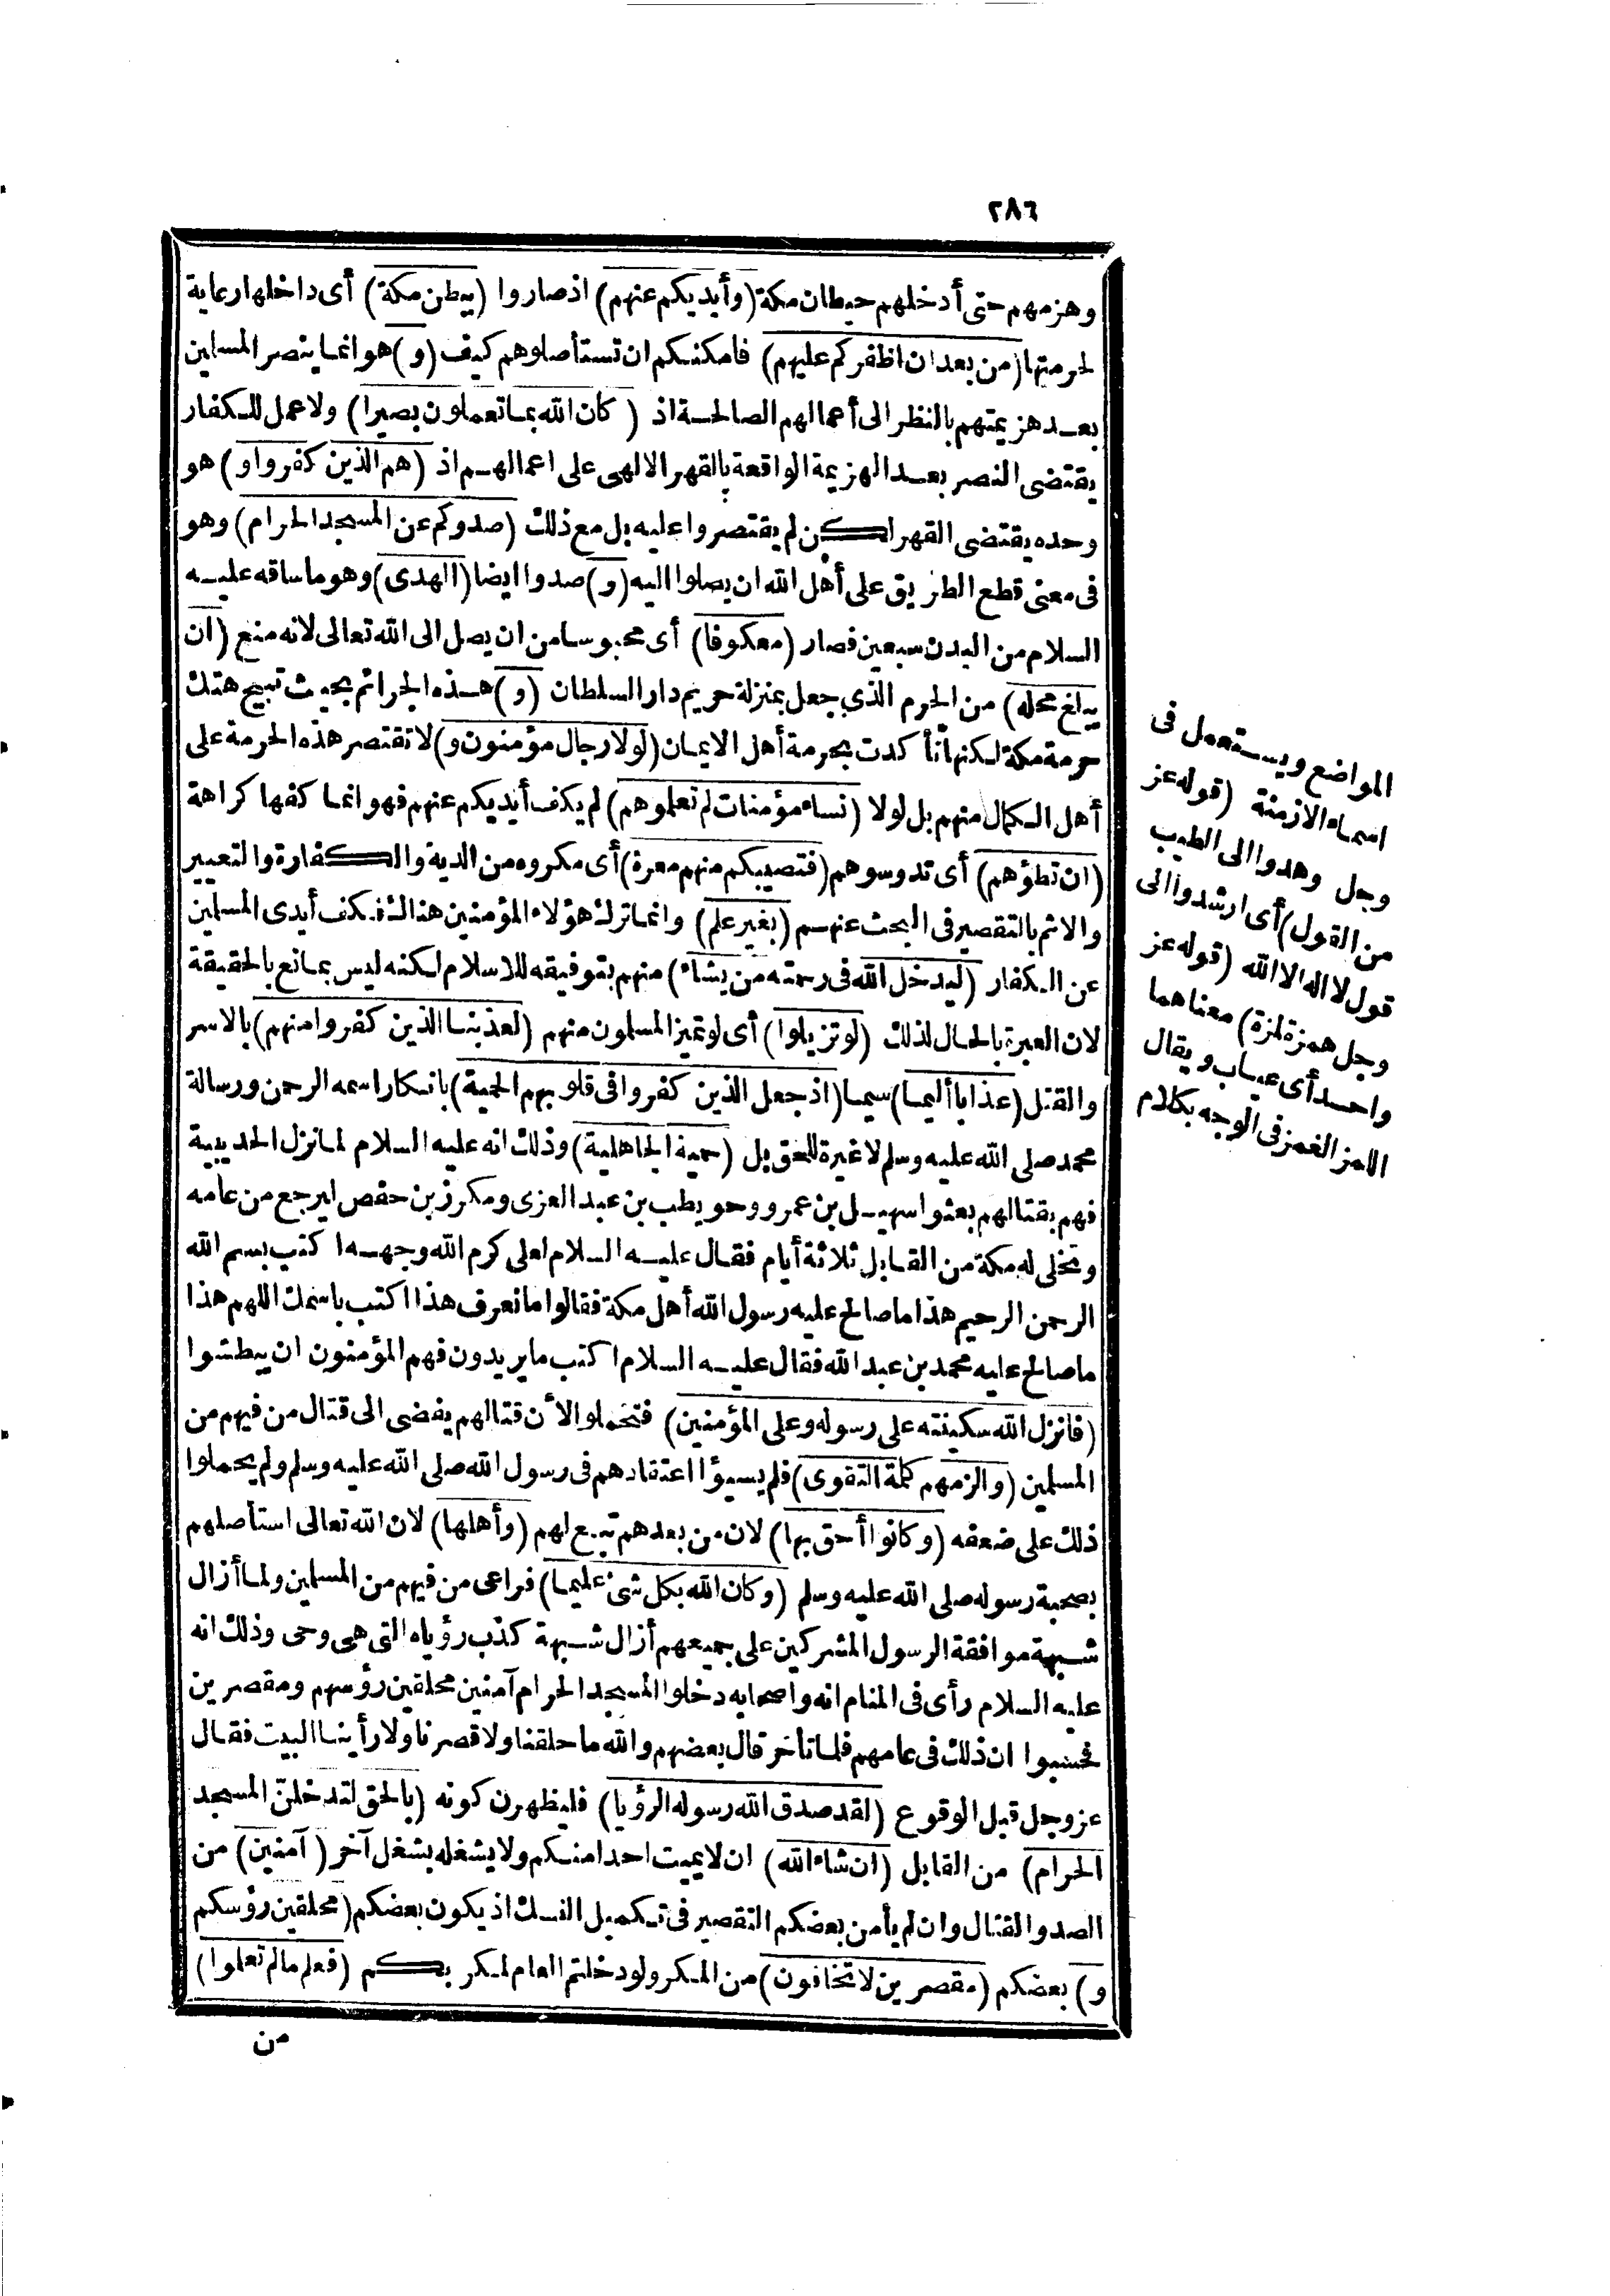 ٢٨٦
وهزمهم حتى أدخلهم حيطان مكة (وأيديكم عنهم) اذ صاروا (ببطن مكة) أى داخلها رعاية
لحرمتها (من بعد ان اظفركم عليهم) فامكنكم ان تستأصلوهم كيف (و) هو انما ينصر المسلمين
بعد هزيمتهم بالنظر الى أعمالهم الصالحة اذ (كان الله بما تعملون بصيرا) ولا عمل للكفار
يقتضى النصر بعد الهزيمة الواقعة بالقهر الالهى على اعمالهم اذ (هم الذين كفروا و) هو
وحده يقتضى القهر لكن لم يقتصروا عليه بل مع ذلك (صدوكم عن المسجد الحرام) وهو
فى معنى قطع الطريق على أهل الله ان يصلوا اليه (و) صدوا ايضا (الهدى) وهو ما ساقه عليه
السلام من البدن سبعين فصار (معكوفا) أى محبوسا من ان يصل الى الله تعالى لانه منع (ان
يبلغ محله) من الحرم الذى جعل بمنزلة حريم دار السلطان (و) هذه الجرائم بحيث تبيح هتك
حرمة مكة لكنها تأكدت بحرمة أهل الايمان (لولا رجال مؤمنون و) لا تقتصر هذه الحرمة على
أهل الكمال منهم بل لولا (نساء مؤمنات لم تعلموهم) لم يكف أيديكم عنهم فهو انما كفها كراهة
(ان تطؤهم) أى تدوسوهم (فتصيبكم منهم معرة) أى مكروه من الدية والكفارة والتعيير
والاثم بالتقصير فى البحث عنهم (بغير علم) وانما ترك هؤلاء المؤمنين هنالك فكف أيدى المسلمين
عن الكفار (ليدخل الله فى رحمته من يشاء) منهم بتوفيقه للاسلام لكنه ليس بمانع بالحقيقة
لان العبرة بالحال لذلك (لو تزيلوا) أى لو تميز المسلمون منهم (لعذبنا الذين كفروا منهم) بالاسر
والقتل (عذابا أليما) سيما (اذ جعل الذين كفروا فى قلوبهم الحمية) بانكار اسمه الرحمن ورسالة
محمد صلى الله عليه وسلم لا غيرة للحق بل (حمية الجاهلية) وذلك انه عليه السلام لما نزل الحديبية
فهم بقتالهم بعثوا سهيل بن عمرو وحويطب بن عبد العزى ومكرز بن حفص ليرجع من عامه
وتخلى له مكة من القابل ثلاثة أيام فقال عليه السلام لعلى كرم الله وجهه اكتب بسم الله
الرحمن الرحيم هذا ما صالح عليه رسول الله أهل مكة فقالوا ما نعرف هذا اكتب باسمك اللهم هذا
ما صالح عليه محمد بن عبد الله فقال عليه السلام اكتب ما يريدون فهم المؤمنون ان يبطشوا
(فانزل الله سكينته على رسوله وعلى المؤمنين) فتحملوا لأن قتالهم يفضى الى قتال من فيهم من
المسلمين (والزمهم كلمة التقوى) فلم يسيؤا اعتقادهم فى رسول الله صلى الله عليه وسلم ولم يحملوا
ذلك على ضعفه (وكانوا أحق بها) لان من بعدهم تبع لهم (وأهلها) لان الله تعالى استأصلهم
بصحبة رسوله صلى الله عليه وسلم (وكان الله بكل شئ عليما) فراعى من فيهم من المسلمين ولما أزال
شبهة موافقة الرسول المشركين على جميعهم أزال شبهة كذب رؤياه التى هى وحى وذلك انه
عليه السلام رأى فى المنام انه واصحابه دخلوا المسجد الحرام آمنين محلقين رؤسهم ومقصرين
فحسبوا ان ذلك فى عامهم فلما تأخر قال بعضهم والله ما حلقنا ولا قصرنا ولا رأينا البيت فقال
عز وجل قبل الوقوع (لقد صدق الله رسوله الرؤيا) فليظهرن كونه (بالحق لتدخلنّ المسجد
الحرام) من القابل (ان شاء الله) ان لا يميت احدا منكم ولا يشغله بشغل آخر (آمنين) من
الصد والقتال وان لم يأمن بعضكم التقصير فى تكميل النسك اذ يكون بعضكم (محلقين رؤسكم
و) بعضكم (مقصرين لا تخافون) من المكر ولو دخلتم العام لمكر بكم (فعلم ما لم تعلموا)
من
المواضع ويستعمل فى
اسماء الازمنة (قوله عز
وجل وهدوا الى الطيب
من القول) أى ارشدوا الى
قول لا اله الا الله (قوله عز
وجل همزة لمزة) معناهما
واحد أى عياب ويقال
اللمز الغمز فى الوجه بكلام